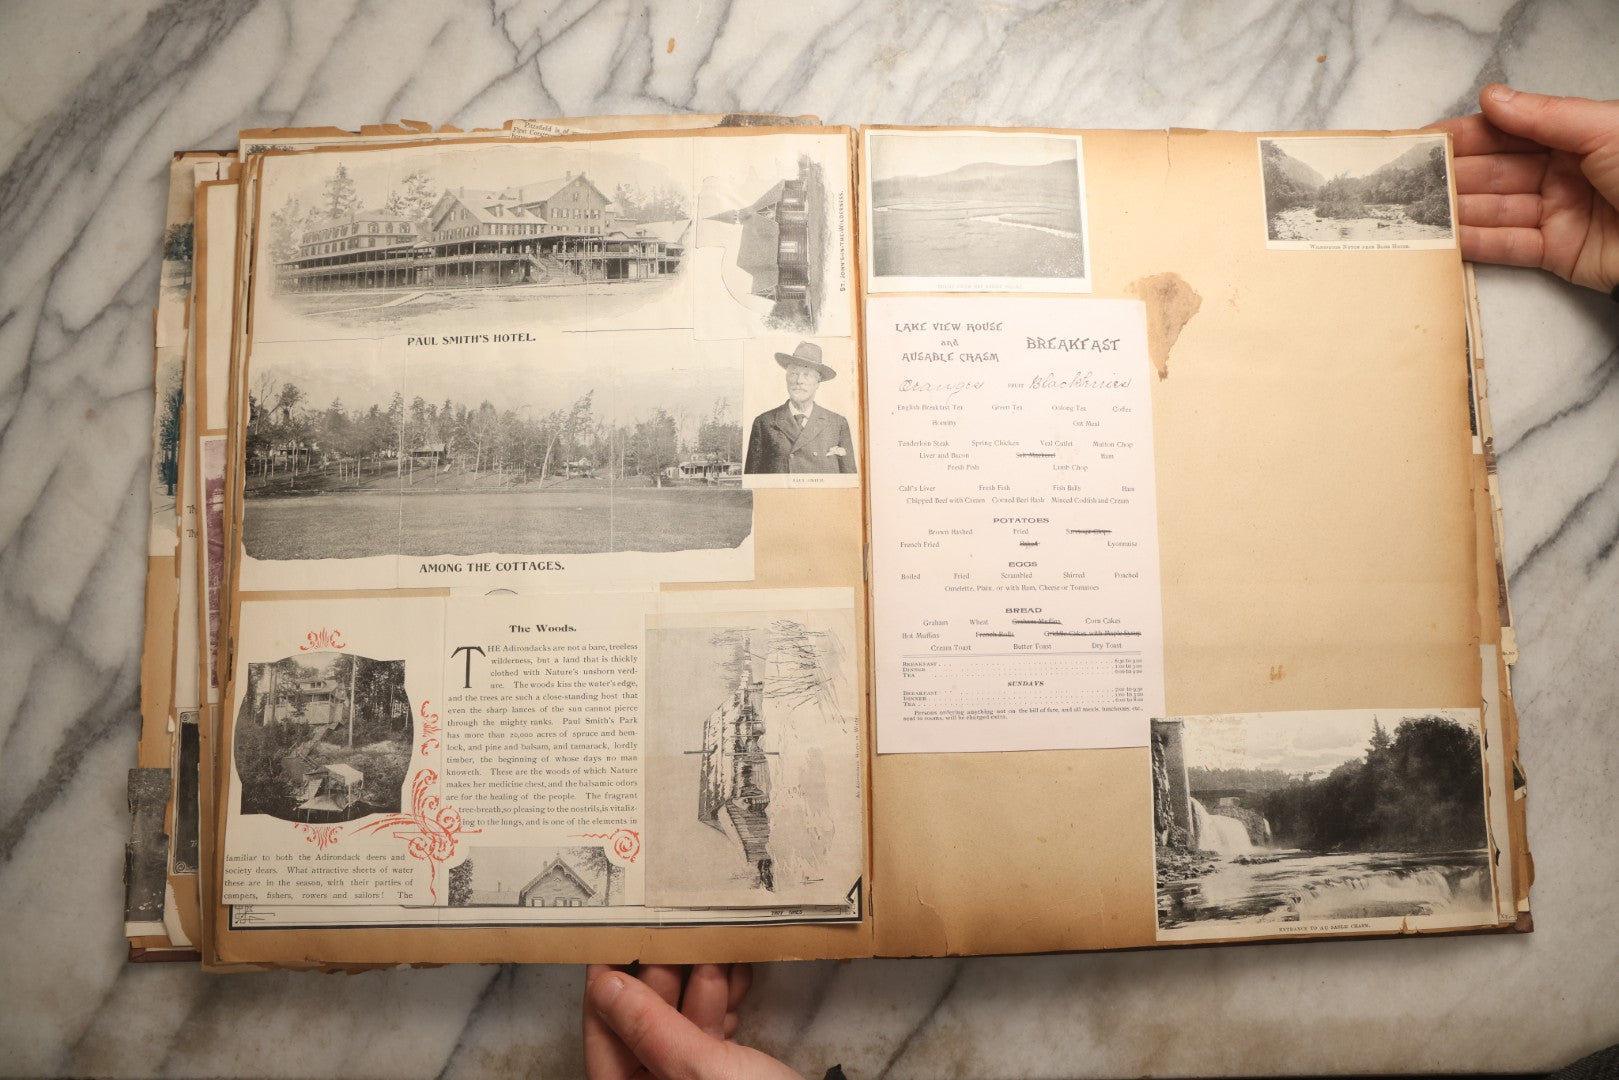 Pittsfield is of
First Congre
PAUL SMITH'S HOTEL.
ST. JOHN'S-IN-THE-WILDERNESS.
PAUL SMITH.
AMONG THE COTTAGES.
The Woods.
THE Adirondacks are not a bare, treeless
wilderness, but a land that is thickly
clothed with Nature's unshorn verd-
ure. The woods kiss the water's edge,
and the trees are such a close-standing host that
even the sharp lances of the sun cannot pierce
through the mighty ranks. Paul Smith's Park
has more than 20,000 acres of spruce and hem-
lock, and pine and balsam, and tamarack, lordly
timber, the beginning of whose days no man
knoweth. These are the woods of which Nature
makes her medicine chest, and the balsamic odors
are for the healing of the people. The fragrant
tree-breath, so pleasing to the nostrils, is vitaliz-
ing to the lungs, and is one of the elements in
familiar to both the Adirondack deers and
society dears. What attractive sheets of water
these are in the season, with their parties of
campers, fishers, rowers and sailors! The
WILMINGTON NOTCH FROM BLISS HOUSE.
LAKE VIEW HOUSE
and
AUSABLE CHASM
BREAKFAST
Oranges FRUIT Blackberries
English Breakfast Tea Green Tea Oolong Tea Coffee
Hominy Oat Meal
Tenderloin Steak Spring Chicken Veal Cutlet Mutton Chop
Liver and Bacon Salt Mackerel Ham
Fresh Fish Lamb Chop
Calf's Liver Fresh Fish Fish Balls Ham
Chipped Beef with Cream Corned Beef Hash Minced Codfish and Cream
POTATOES
Brown Hashed Fried Saratoga Chips
French Fried Baked Lyonnaise
EGGS
Boiled Fried Scrambled Shirred Poached
Omelette, Plain, or with Ham, Cheese or Tomatoes
BREAD
Graham Wheat Graham Muffins Corn Cakes
Hot Muffins French Rolls Griddle Cakes with Maple Syrup
Cream Toast Butter Toast Dry Toast
BREAKFAST 6:30 to 9:00
DINNER 1:00 to 3:00
TEA 6:00 to 9:00
SUNDAYS
BREAKFAST 7:00 to 9:30
DINNER 1:00 to 3:00
TEA 6:00 to 8:00
Persons ordering anything not on the bill of fare, and all meals, luncheons, etc.,
sent to rooms, will be charged extra.
ENTRANCE TO AU SABLE CHASM.